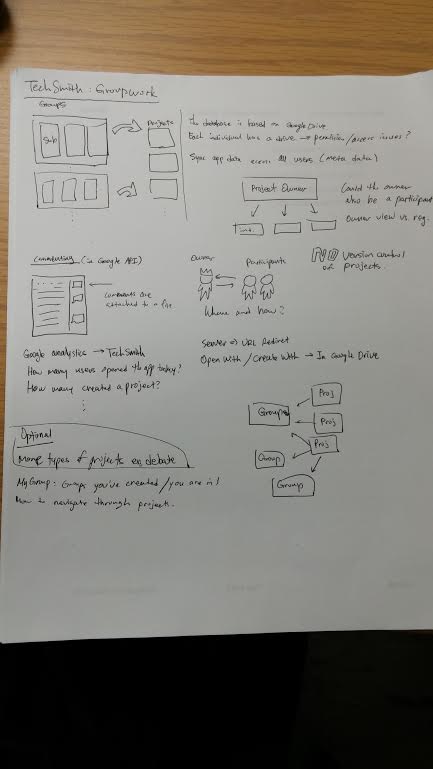 TechSmith: Groupwork
Groups
Projects
Sub
The database is based on Google Drive.
Each individual has a drive → permission/access issues?
Sync app data across all users (Meta data)
Project Owner
Could the owner
also be a participant
Owner view vs. reg.
NO version control
of projects.
Commenting (in Google API)
comments are
attached to a file
Owner
Participants
Where and how?
Google analytics → TechSmith
How many users opened the app today?
How many created a project?
Server URL Redirect
Open With / Create With → In Google Drive
Proj
Group
Proj
Proj
Group
Group
Optional
More types of projects ex. debate
My Group: Groups you've created / you are in!
How to navigate through projects.